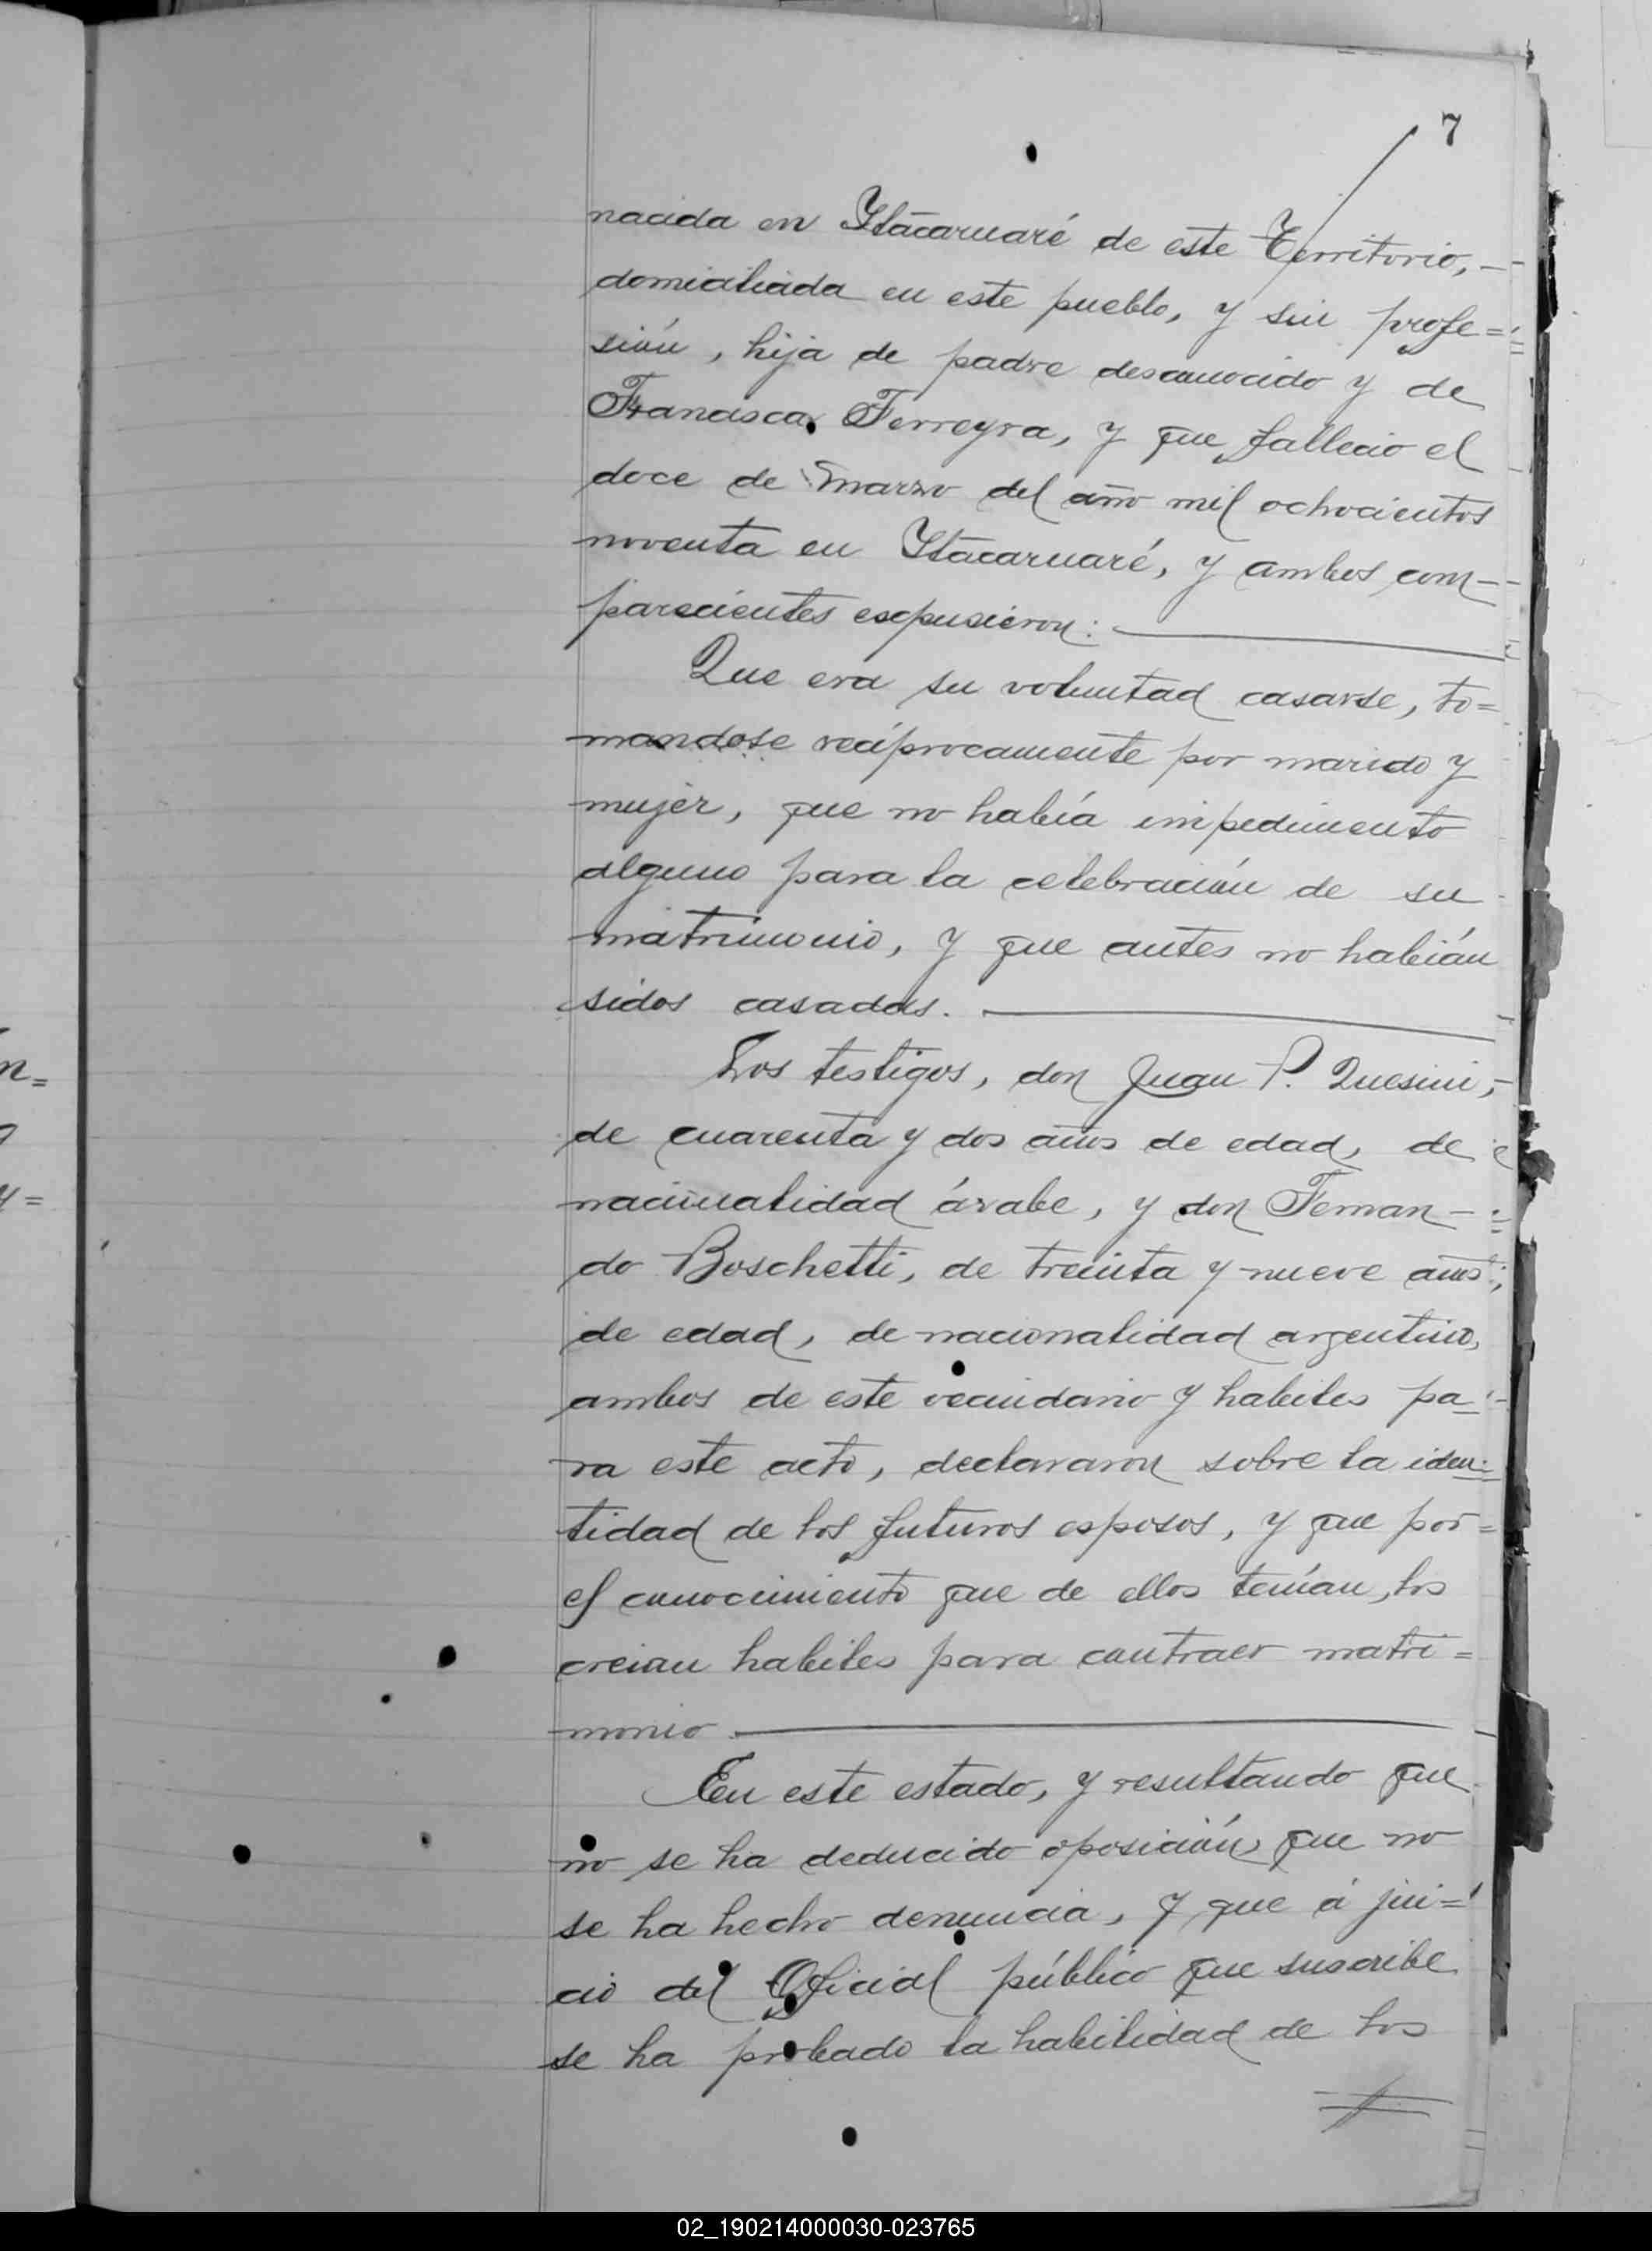 7
nacida en Itacaruaré de este Territorio,-
domiciliada en este pueblo, y sin profe=
sión, hija de padre desconocido y de
Francisca Ferreyra, y que fallecio el
doce de Marzo del año mil ochocientos
noventa en Itacaruaré, y ambos com-
parecientes expusieron:
Que era su voluntad casarse, to=
mandose recíprocamente por marido y
mujer, que no había impedimento
alguno para la celebración de su
matrimonio, y que antes no habían
sidos casados.
Los testigos, don Juan P. Quesini,-
de cuarenta y dos años de edad, de
nacionalidad árabe, y don Fernan-
do Boschetti, de treinta y nueve años
de edad, de nacionalidad argentino,
ambos de este vecindario y habiles pa=
ra este acto, declararon sobre la iden=
tidad de los futuros esposos, y que por=
el conocimiento que de ellos tenían, los
creian habiles para contraer matri=
monio.
En este estado, y resultando que
no se ha deducido oposición, que no
se ha hecho denuncia, y que á jui=
cio del Oficial público que suscribe
se ha probado la habilidad de los
n=
02_190214000030-023765